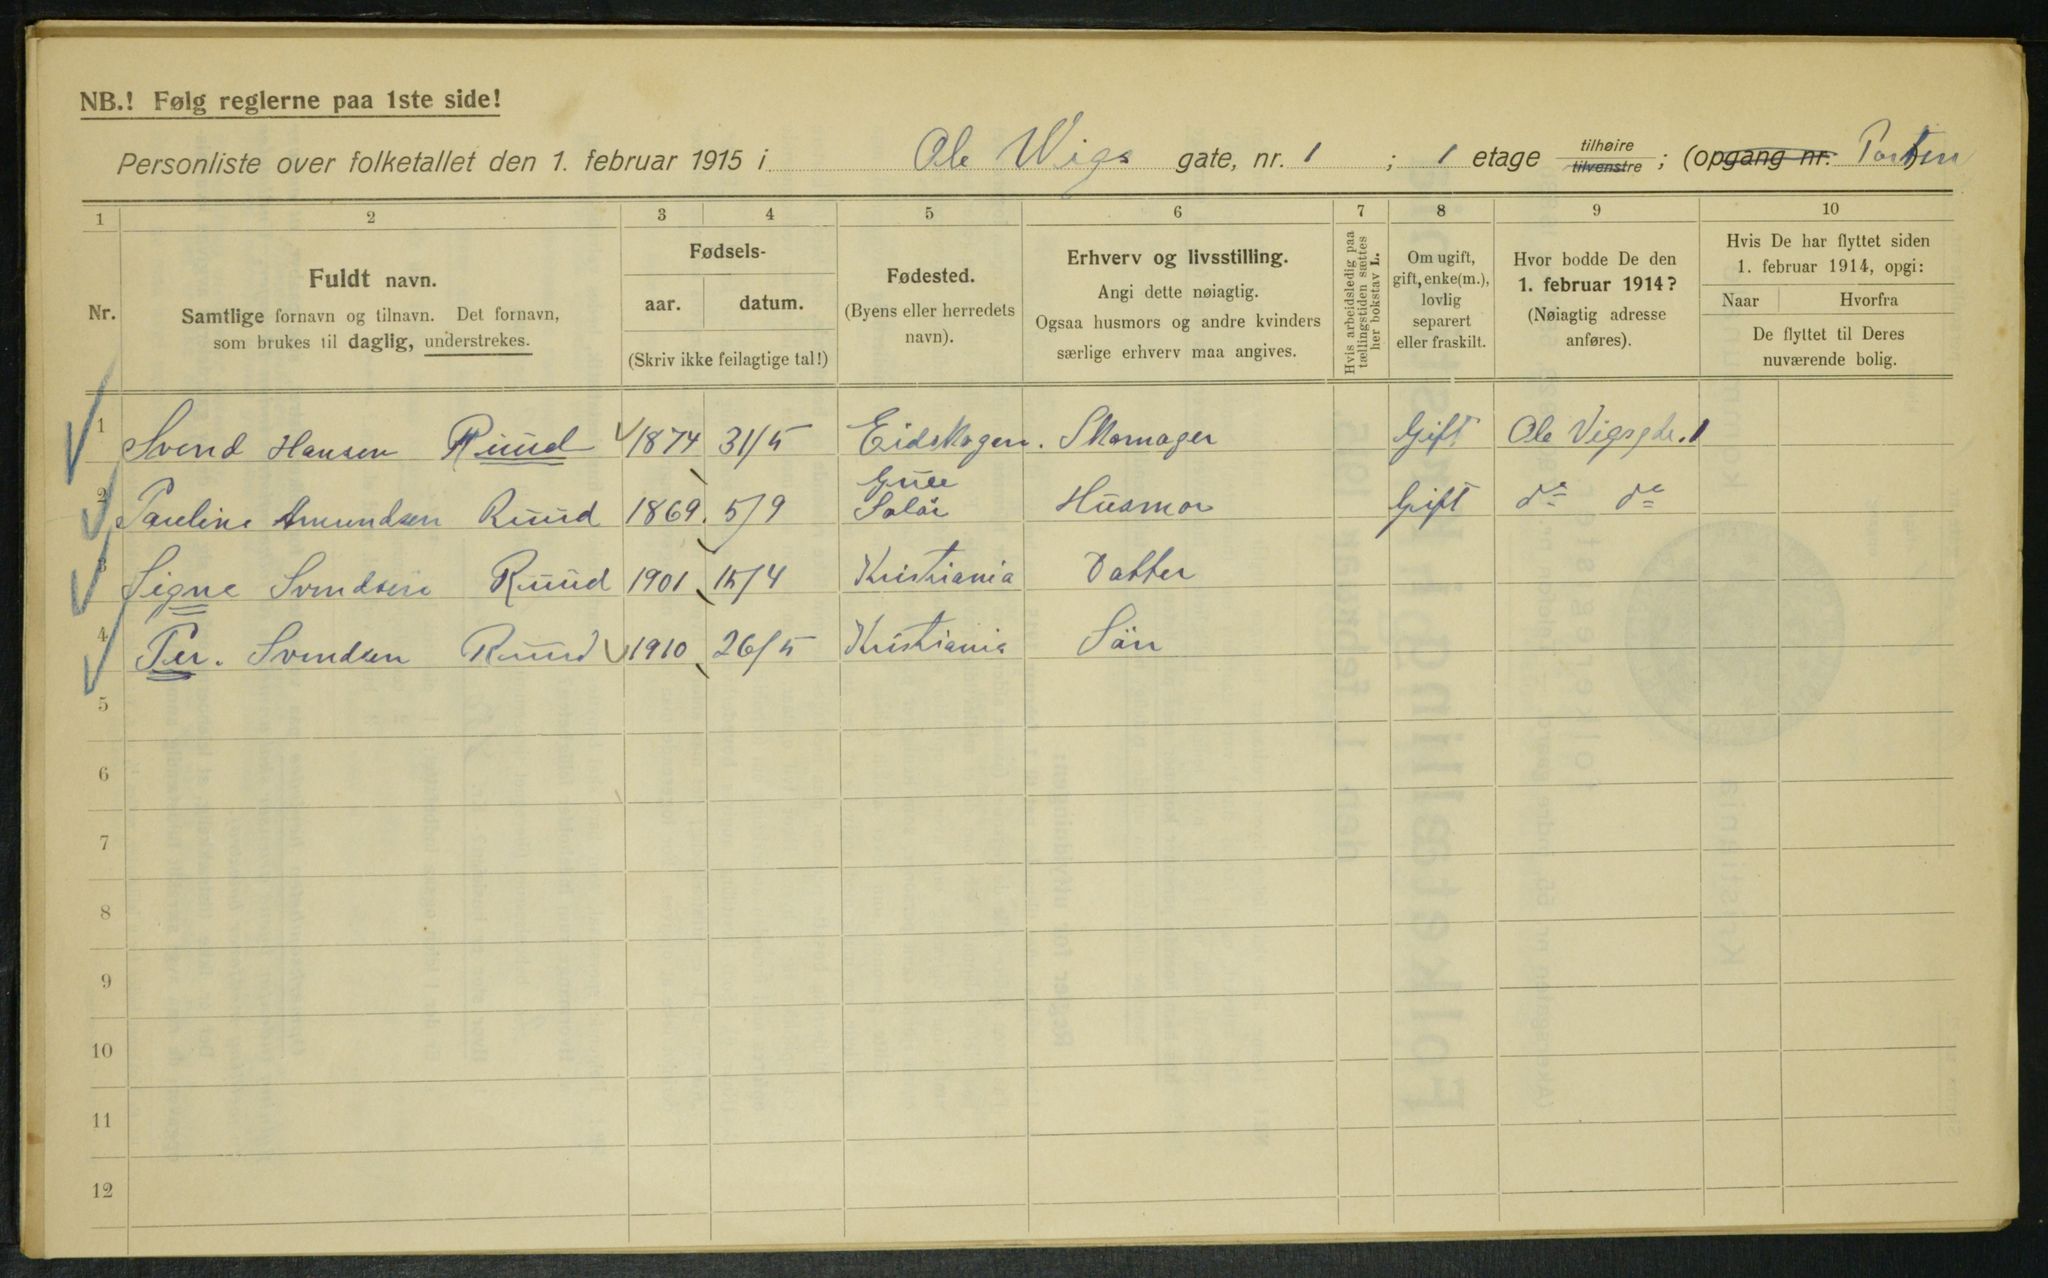 NB.! Følg reglerne paa 1ste side!
Personliste over folketallet den 1. februar 1915 i Ole Wigs gate, nr. 1 ; 1 etage tilhøire tilvenstre ; (opgang nr. Porten
1 2 3 4 5 6 7 8 9 10
Nr.
Fuldt navn.
Samtlige fornavn og tilnavn. Det fornavn,
som brukes til daglig, understrekes.
Fødsels-
aar. datum.
(Skriv ikke feilagtige tal!)
Fødested.
(Byens eller herredets
navn).
Erhverv og livsstilling.
Angi dette nøiagtig.
Ogsaa husmors og andre kvinders
særlige erhverv maa angives.
Hvis arbeidsledig paa
tællingstiden sættes
her bokstav L.
Om ugift,
gift, enke(m.),
lovlig
separert
eller fraskilt.
Hvor bodde De den
1. februar 1914?
(Nøiagtig adresse
anføres).
Hvis De har flyttet siden
1. februar 1914, opgi:
Naar Hvorfra
De flyttet til Deres
nuværende bolig.
1 Svend Hansen Ruud 1874 31/5 Eidskogen. Skomager Gift Ole Vigsgde. 1
2 Pauline Amundsen Ruud 1869. 5/9 Solör Husmor Gift do do
3 Signe Svendsen Ruud 1901 15/4 Kristiania Datter
4 Per. Svendsen Ruud 1910 26/5 Kristiania Sön
5
6
7
8
9
10
11
12